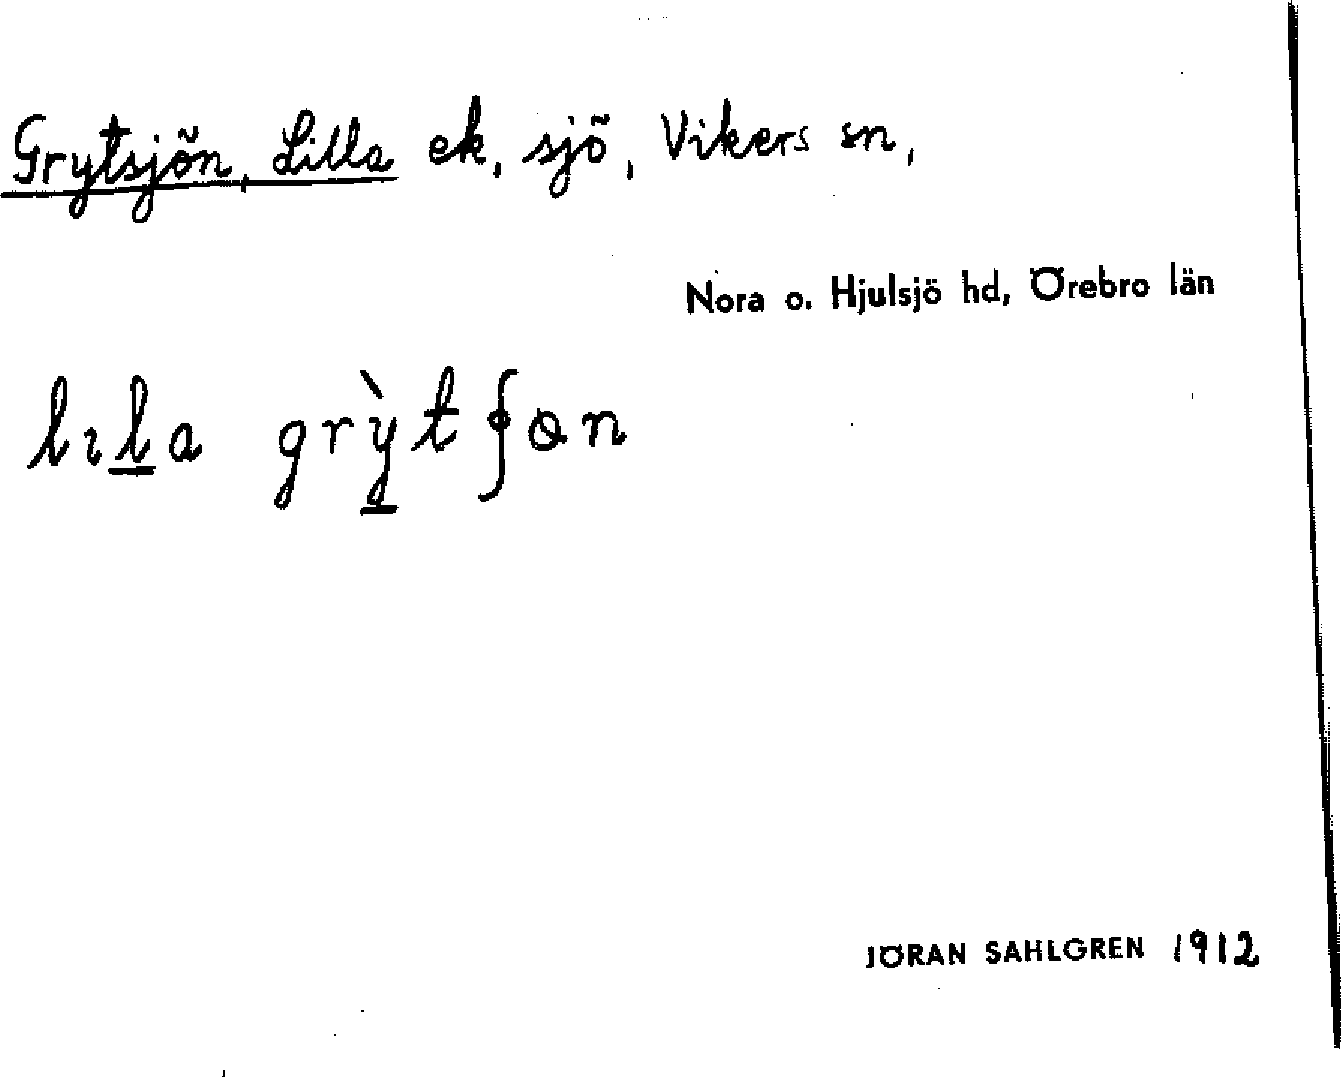 Grytsjön, Lilla ek, sjö, Vikers sn,
Nora o. Hjulsjö hd, Örebro län
lıla grỳtʃɵn
JÖRAN SAHLGREN 1912